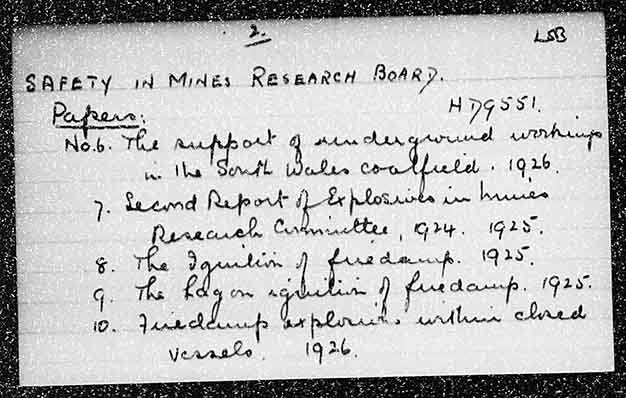 2.
LSB
SAFETY IN MINES RESEARCH BOARD.
Papers:
HD9551.
No.6. The support of underground workings
in the South Wales coalfield. 1926.
7. Second Report of Explosives in Mines
Research Committee, 1924. 1925.
8. The Ignition of firedamp. 1925.
9. The Lag on ignition of firedamp. 1925.
10. Firedamp explosions within closed
vessels. 1926.